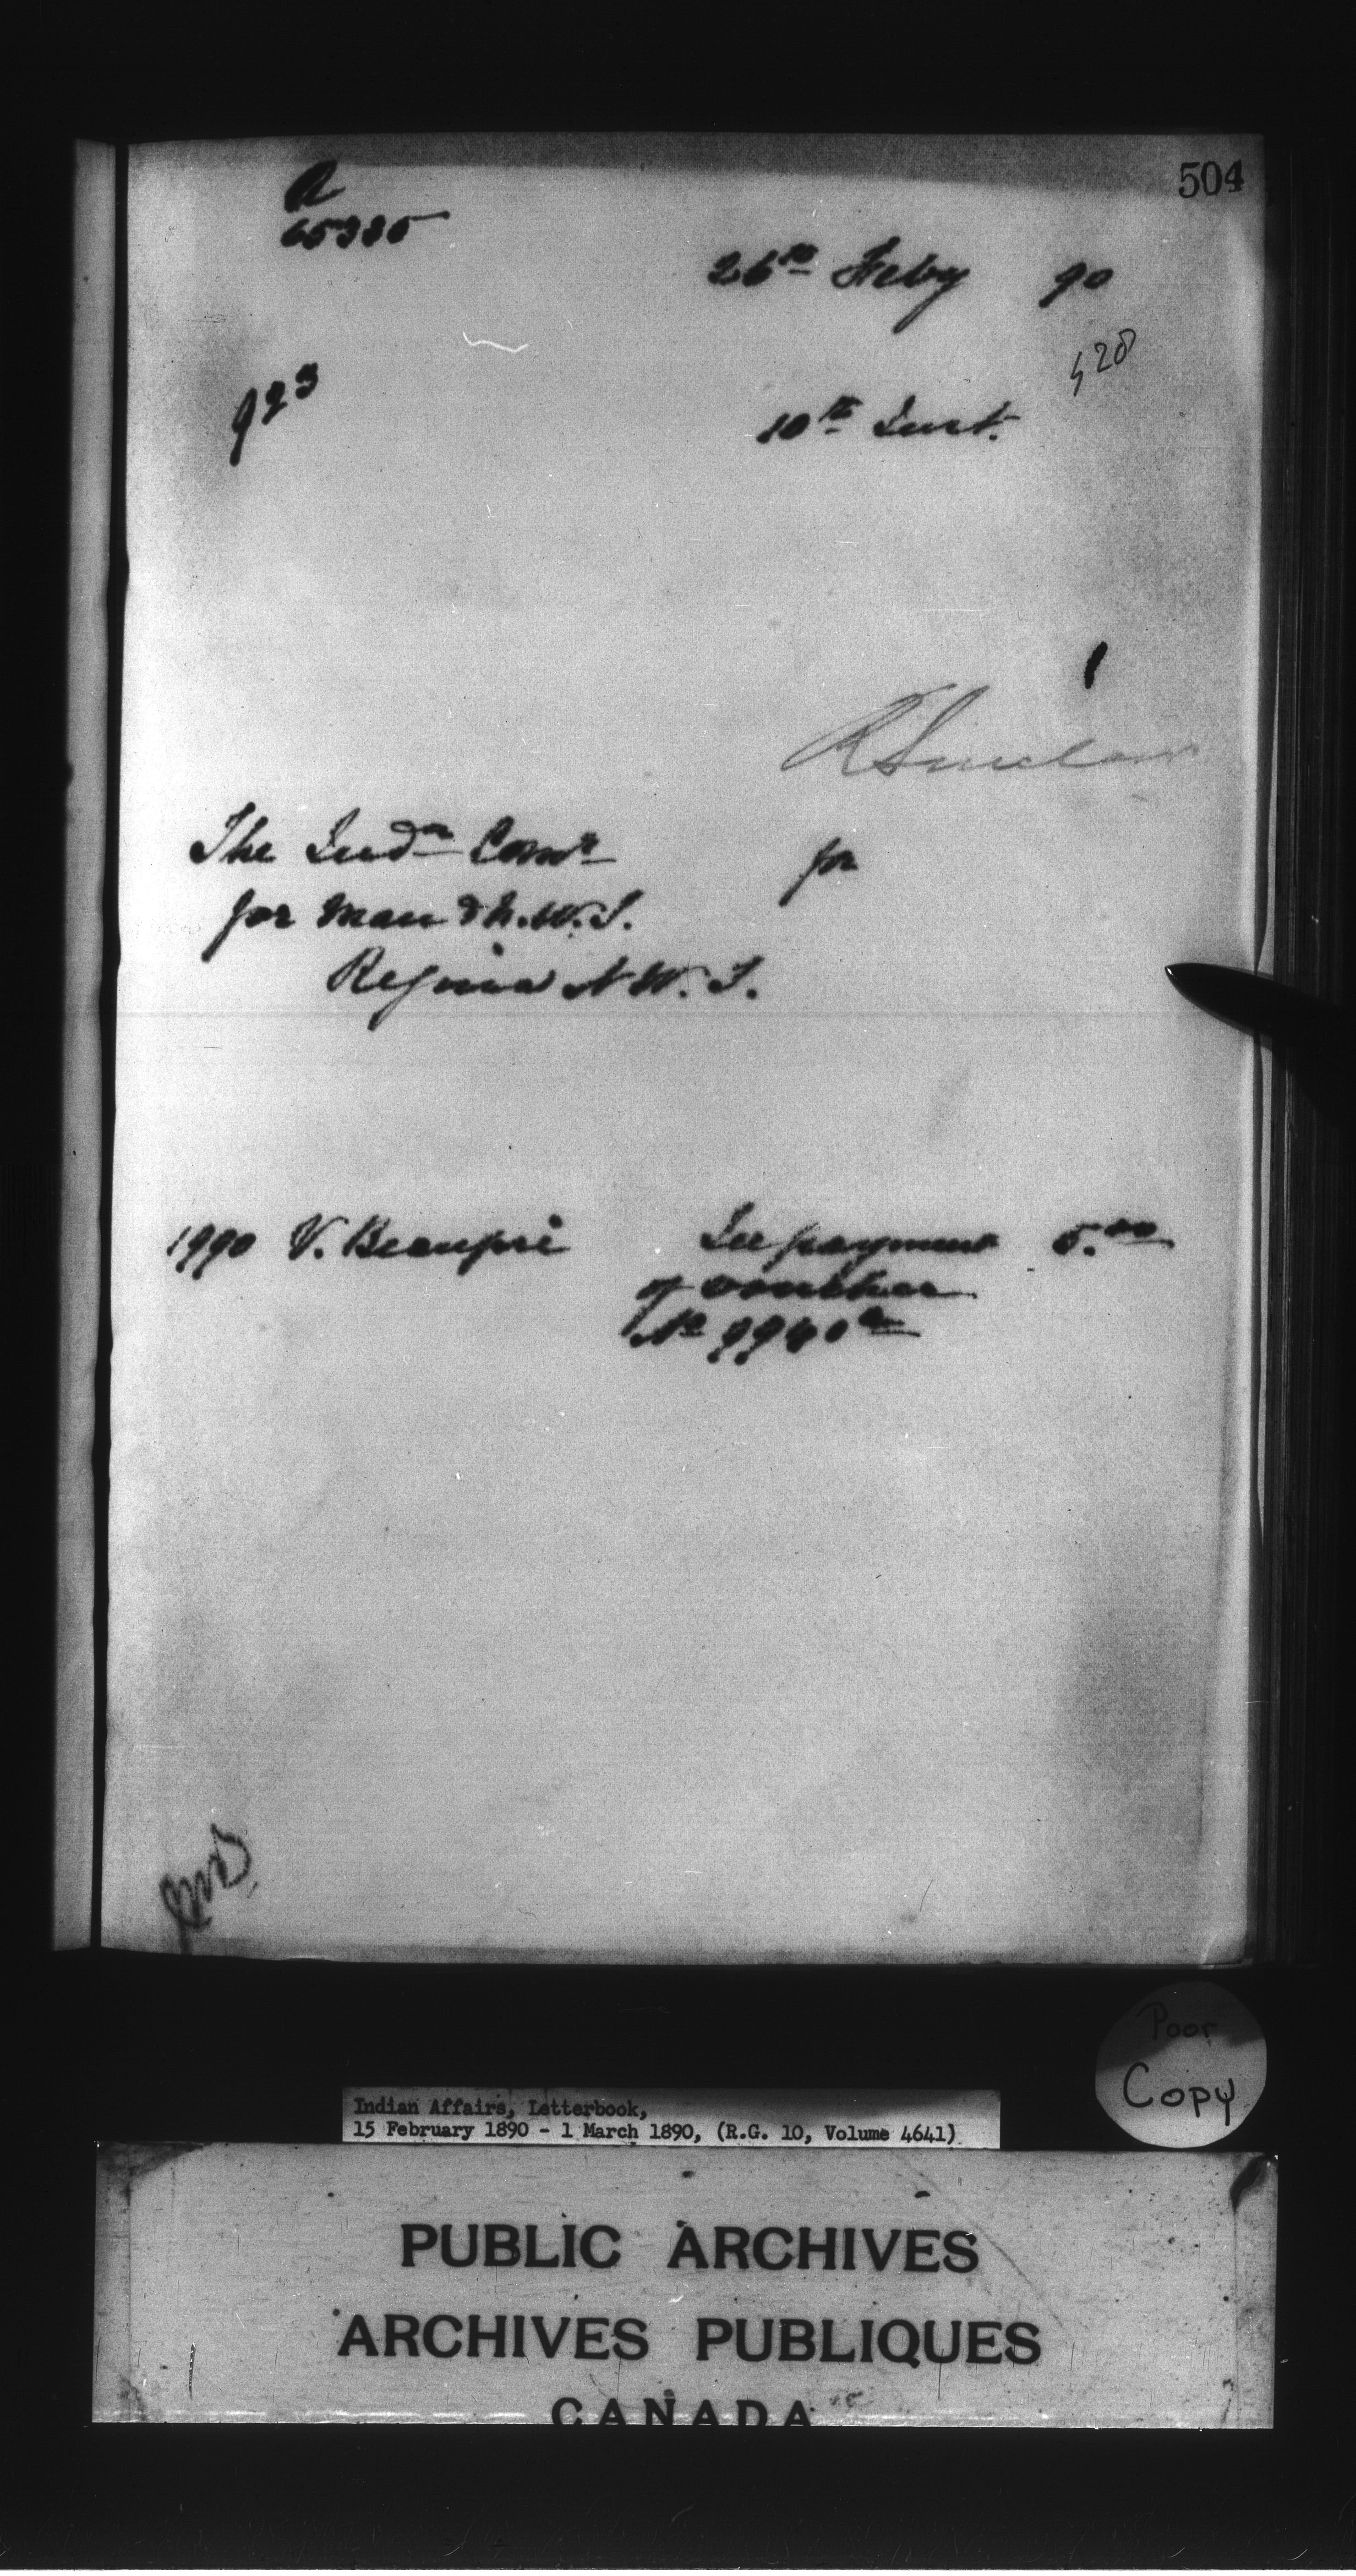 504
R
65335
26th Feby 90
428
923
10th Inst.
R Sinclair
The Indn Comr for
for Man & N.W.T.
Regina N.W.T.
1990 V. Beaupré In payment 5.00
of voucher
No 9940
Poor
Copy
Indian Affairs, Letterbook,
15 February 1890 - 1 March 1890, (R.G. 10, Volume 4641)
PUBLIC ARCHIVES
ARCHIVES PUBLIQUES
CANADA